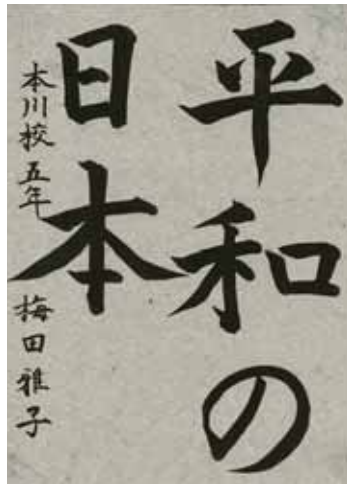 平和の
日本
本川校 五年 梅田雅子